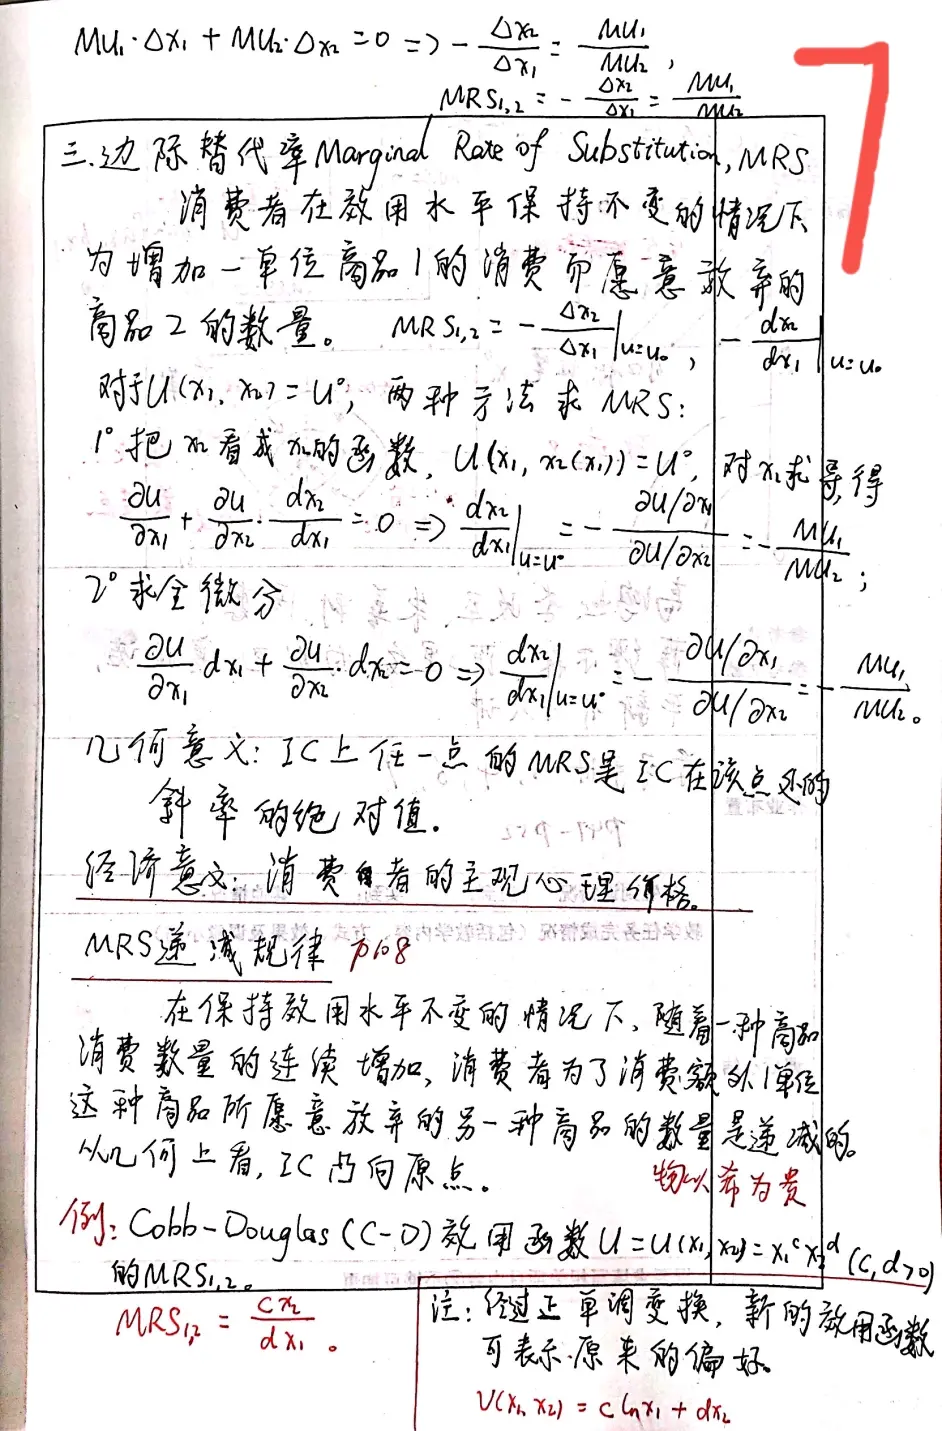 MU₁·Δx₁ + MU₂·Δx₂ = 0 => -Δx₂/Δx₁ = MU₁/MU₂,
MRS₁,₂ = -Δx₂/Δx₁ = MU₁/MU₂
7
三.边际替代率Marginal Rate of Substitution, MRS
消费者在效用水平保持不变的情况下、
为增加一单位商品1的消费而愿意放弃的
商品2的数量。 MRS₁,₂ = -Δx₂/Δx₁|u=u₀, -dx₂/dx₁|u=u₀
对于U(x₁, x₂) = U°, 两种方法求MRS:
1° 把x₂看成x₁的函数, U(x₁, x₂(x₁)) = U°, 对x₁求导,得
∂U/∂x₁ + ∂U/∂x₂ · dx₂/dx₁ = 0 => dx₂/dx₁|u=u° = -(∂U/∂x₁)/(∂U/∂x₂) = -MU₁/MU₂;
2° 求全微分
∂U/∂x₁ dx₁ + ∂U/∂x₂ · dx₂ = 0 => dx₂/dx₁|u=u° = -(∂U/∂x₁)/(∂U/∂x₂) = -MU₁/MU₂。
几何意义: IC上任一点的MRS是IC在该点处的
斜率的绝对值.
经济意义: 消费者的主观心理价格.
MRS递减规律 P108
在保持效用水平不变的情况下、随着一种商品
消费数量的连续增加, 消费者为了消费额外1单位
这种商品所愿意放弃的另一种商品的数量是递减的。
从几何上看, IC凸向原点。
物以希为贵
例: Cobb-Douglas (C-D)效用函数U=U(x₁,x₂)=x₁ᶜx₂ᵈ (c,d>0)
的MRS₁,₂。
MRS₁,₂ = cx₂/dx₁。
注: 经过正单调变换, 新的效用函数
可表示原来的偏好。
V(x₁, x₂) = c lnx₁ + dx₂